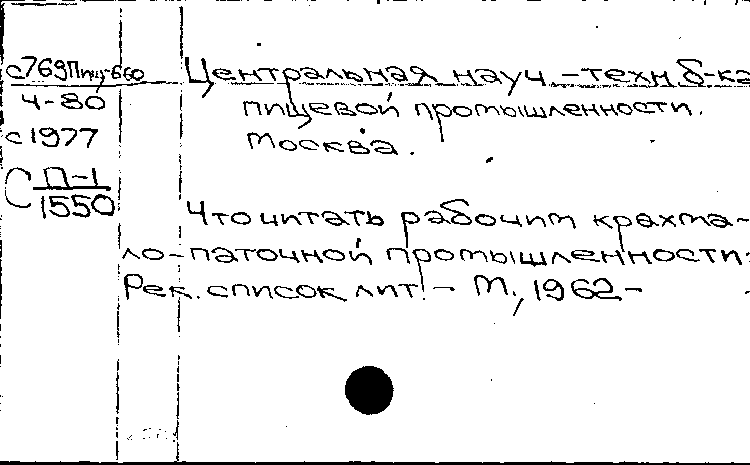 с769Пищ-660
Ч-80
с1977
С П-1
1550
Центральная науч.-техн. б-ка
пищевой промышленности.
Москва.
Что читать рабочим крахма-
ло-паточной промышленности:
Рек. список лит. - М., 1962-